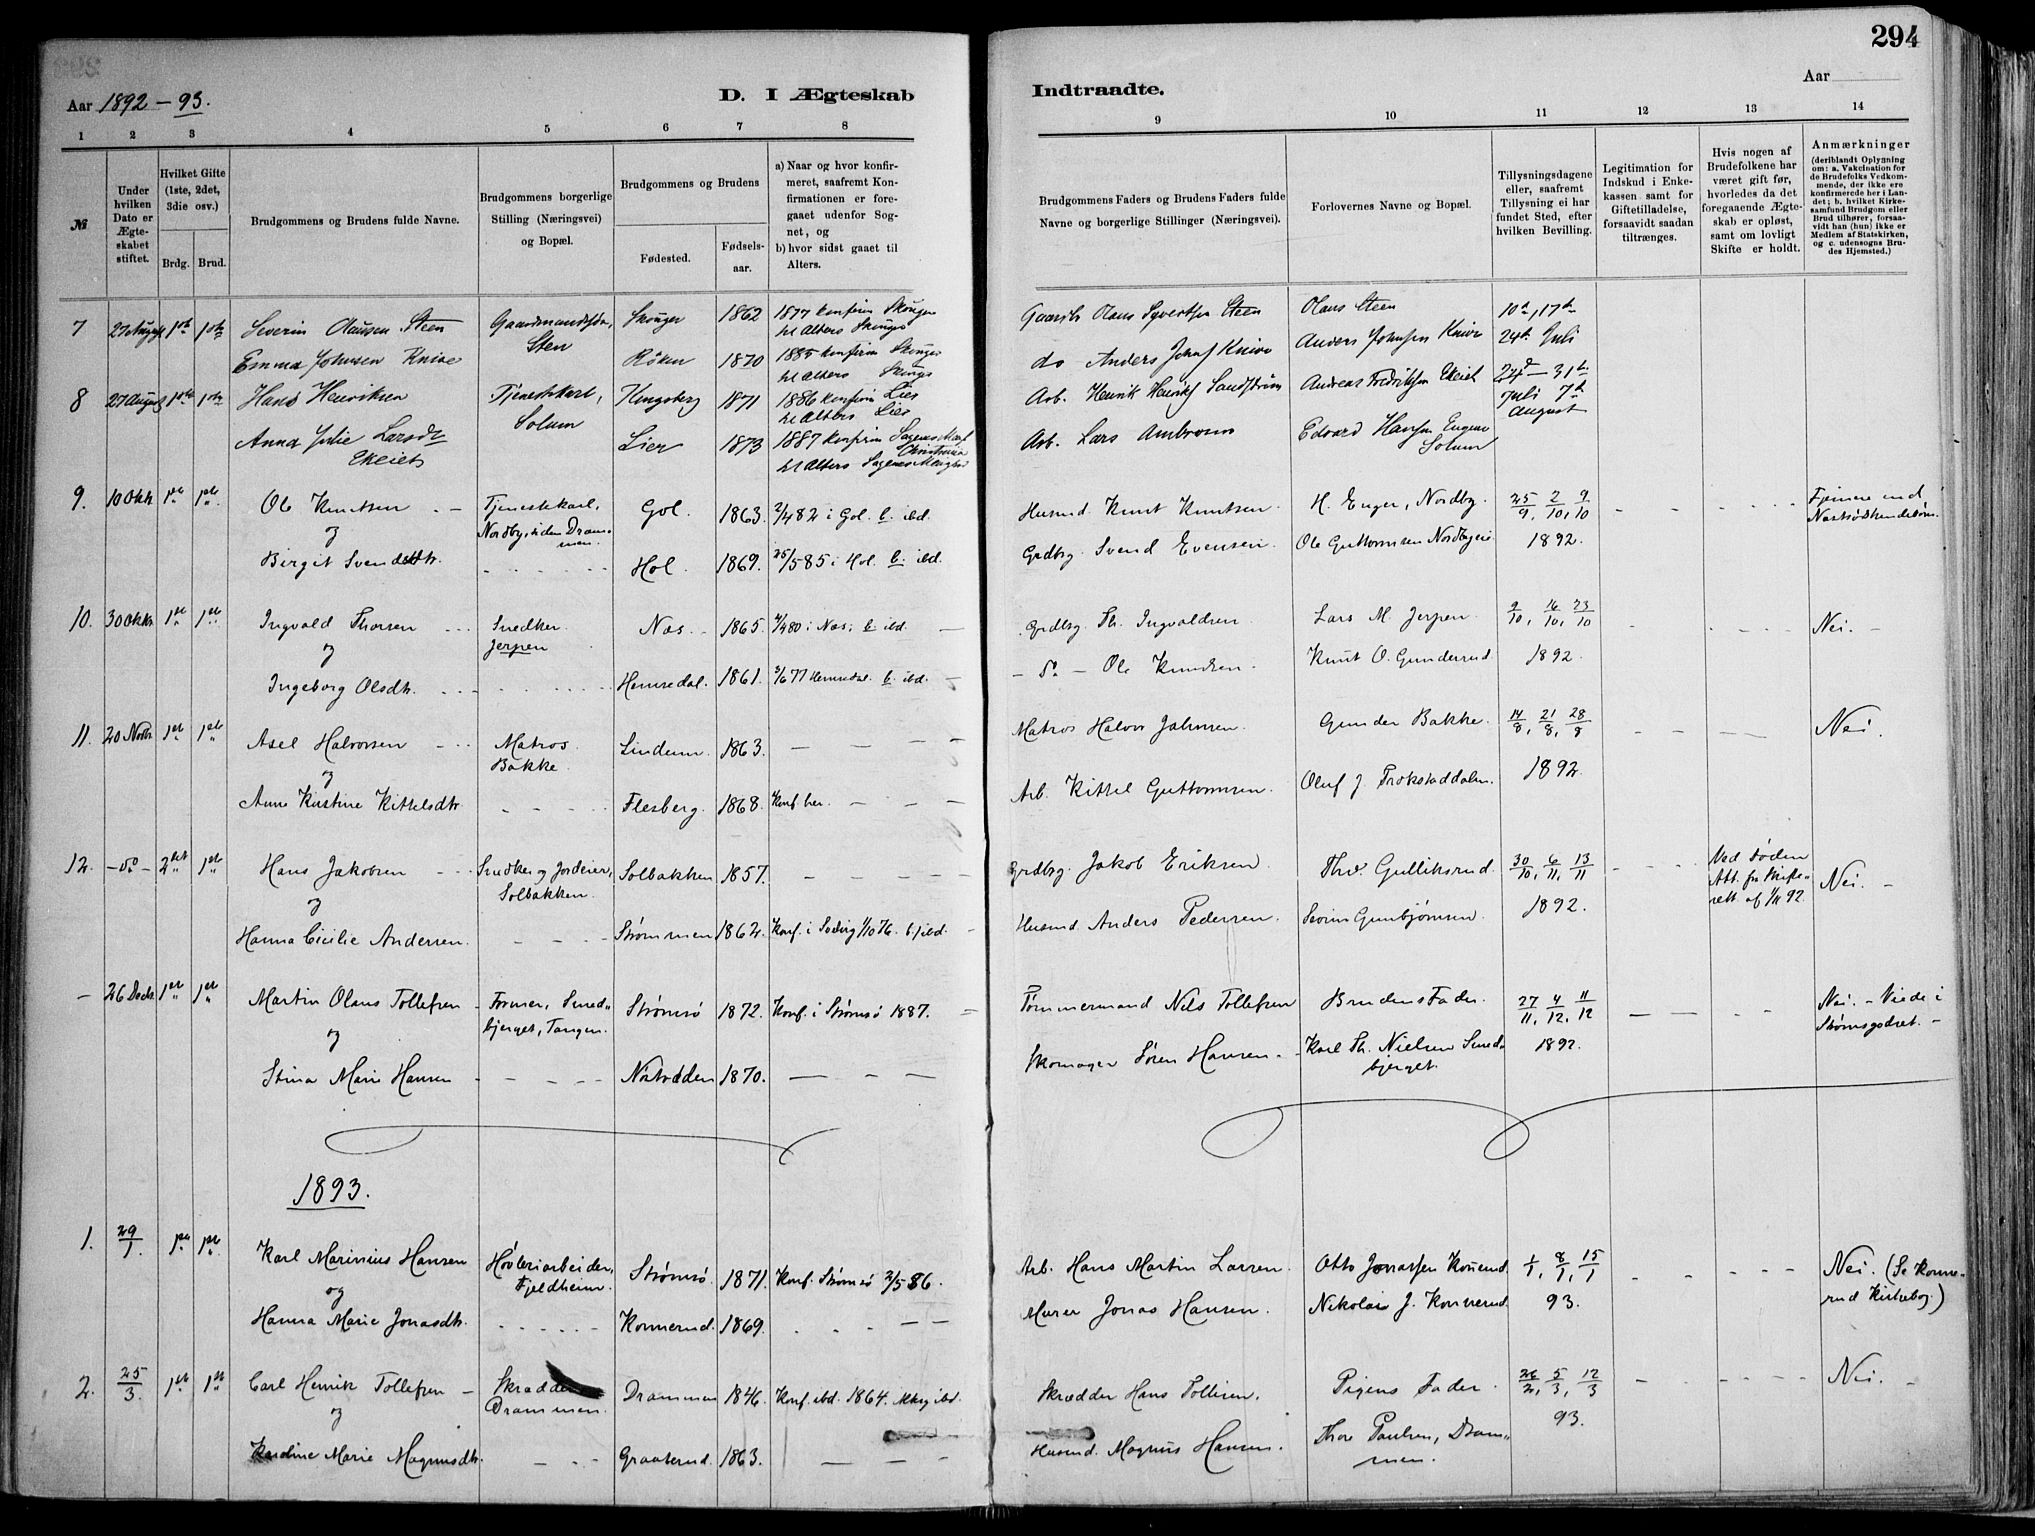 294
Aar 1892 – 93.
D. I Ægteskab
Indtraadte.
Aar
1 2 3 4 5 6 7 8 9 10 11 12 13 14
№
Under hvilken Dato er Ægteskabet stiftet.
Hvilket Gifte (1ste, 2det, 3die osv.)
Brdg. Brud.
Brudgommens og Brudens fulde Navne.
Brudgommens borgerlige Stilling (Næringsvei) og Bopæl.
Brudgommens og Brudens
Fødested.
Fødsels-aar.
a) Naar og hvor konfirmeret, saafremt Konfirmationen er foregaaet udenfor Sognet, og
b) hvor sidst gaaet til Alters.
Brudgommens Faders og Brudens Faders fulde Navne og borgerlige Stillinger (Næringsvei).
Forlovernes Navne og Bopæl.
Tillysningsdagene eller, saafremt Tillysning ei har fundet Sted, efter hvilken Bevilling.
Legitimation for Indskud i Enkekassen samt for Giftetilladelse, forsaavidt saadan tiltrænges.
Hvis nogen af Brudefolkene har været gift før, hvorledes da det foregaaende Ægteskab er opløst, samt om lovligt Skifte er holdt.
Anmærkninger
(deriblandt Oplysning om: a. Vakcination for de Brudefolks Vedkommende, der ikke ere konfirmerede her i Landet; b. hvilket Kirkesamfund Brudgom eller Brud tilhører, forsaavidt han (hun) ikke er Medlem af Statskirken, og c. udensogns Brudes Hjemsted.)
7 27 August 1ste 1ste Severin Olausen Steen Sten Skouger 1862 1877 konfirm Skouger Olaus Steen 10de, 17de
Emma Johnsen Knive Røken 1870 1885 konfirm Skouger do Anders Knive Anders Johnsen Knive 24de Juli
8 27 August 1ste 1ste Hans Henriksen Tjenestekarl, Solum Kongsberg 1871 1886 konfirm Lier Arb. Henrik Andreas Fredriksen Ekeiet 24de – 31te Juli 7de August
Anna Julie Larsdr Ekeiet Lier 1873 1887 konfirm Arb. Lars Edvard Hansen Solum
9. 10 Oktr. 1ste 1ste Ole Knutsen Tjenestekarl, Nordby, siden Drammen. Gol. 1863. i Gol. b. ibd. Husmd. Knut Knutsen. H. Enger, Nordby. 25/9, 2/10, 9/10
og
Birgit Svendsdtr. Hol. 1869. 25/5 85 i Hol. b. ibd. Grdbrg. Svend Evensen. Ole Guttormsen 1892.
10. 30 Oktr. 1ste 1ste Ingvald Thorsen Snedker. Jerpen Næs. 1865. i Næs. b. ibd. Grdbrg. Th. Ingvaldsen. Lars M. Jerpen. 9/10, 16/10, 23/10 Nei.
og
Ingeborg Olsdtr. Hemsedal. 1861. Hemsedal b. ibd. – do – Ole Knudsen. Knut O. Gunderud. 1892.
11. 20 Novbr. 1ste 1ste Axel Halvorsen Matros. Bakke. Lindum. 1863. Matros Halvor Johnsen Gunder Bakke. 14/8, 21/8, 28/8 Nei.
og
Anne Kirstine Kittelsdtr. Flesberg. 1868. Konf. her. Arb. Kittel Guttormsen. Oluf J. 1892.
12. – do – 2det 1ste Hans Jakobsen Snedker og Jordeier, Solbakken. Solbakken 1857. Grdbrg. Jakob Eriksen. Thv. Gulliksrud. 30/10, 6/11, 13/11 Ved Døden Att. fra Skifterett af 1/11 92. Nei.
og
Hanna Cicilie Andersen. Strømmen 1862. Husmd. Anders Pedersen. 1892.
– 26 Decbr. 1ste 1ste Martin Olaus Tollefsen Former, Smedbjerget, Tangen. Strømsø 1872. Konf. i Strømsø 1887. Tømmermand Nils Tollefsen Brudens Fader. 27/11, 4/12, 11/12 Nei. – Viede i Strømsgodset.
og
Stina Marie Hansen Næstodden 1870. Skomager Søren Hansen. Karl Th. Nielsen Smedbjerget. 1892.
1893.
1. 29/1. 1ste 1ste Karl Marinius Hansen Høvleriarbeider, Fjeldheim. Strømsø. 1871. Konf. Strømsø 2/5 86. Arb. Hans Martin Larsen. Otto Jonassen Konnerud. 1/1, 8/1, 15/1 Nei. (Se Konnerud Kirkebog.)
og
Hanna Marie Jonasdtr. Konnerud. 1869. Murer Jonas Hansen. Nikolai J. Konnerud. 93.
2. 25/3. 1ste 1ste Carl Henrik Tollefsen Skrædder Drammen. Drammen 1846. Konf. ibd. 1864. ibd. Skrædder Hans Tollefsen. Pigens Fader. 26/2, 5/3, 12/3 Nei.
og
Marie Magnusdtr. Graaterud. 1863. Husmd. Magnus Hansen. Thore Paulsen, Drammen. 93.